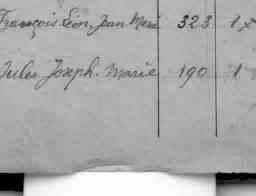 François Éon, Jean Marie 323 1
Jules Joseph-Marie 190 1